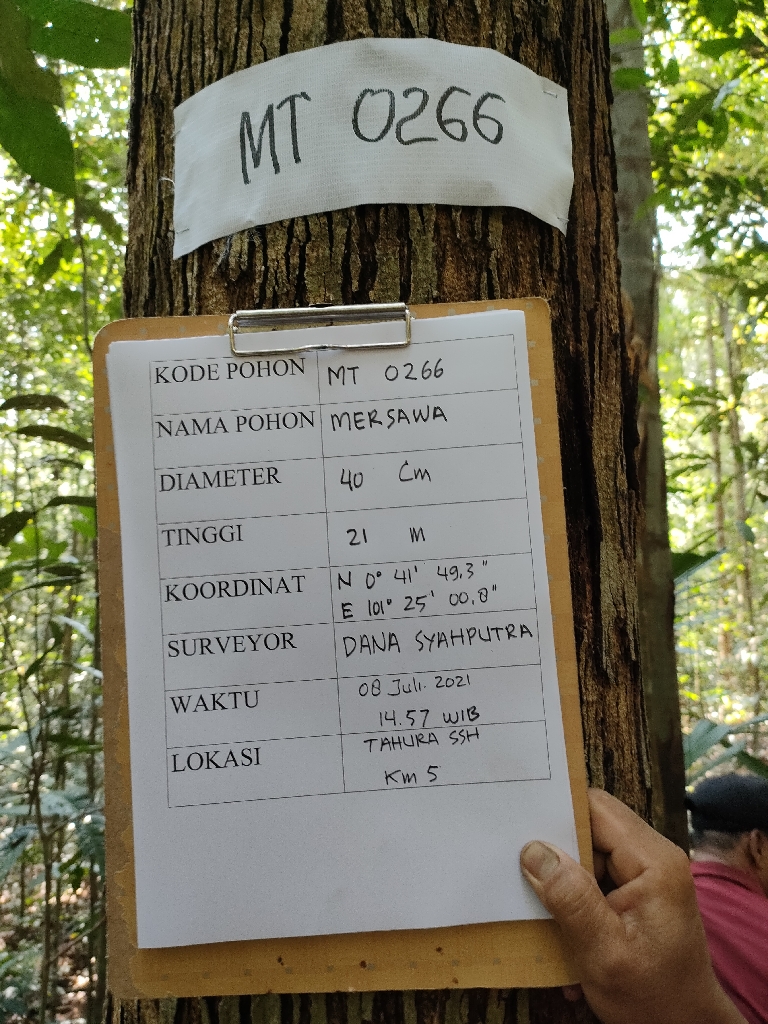 MT 0266
KODE POHON MT 0266
NAMA POHON MERSAWA
DIAMETER 40 Cm
TINGGI 21 m
KOORDINAT N 0° 41' 49,3"
E 101° 25' 00,8"
SURVEYOR DANA SYAHPUTRA
WAKTU 08 Juli. 2021
14.57 WIB
LOKASI TAHURA SSH
Km 5